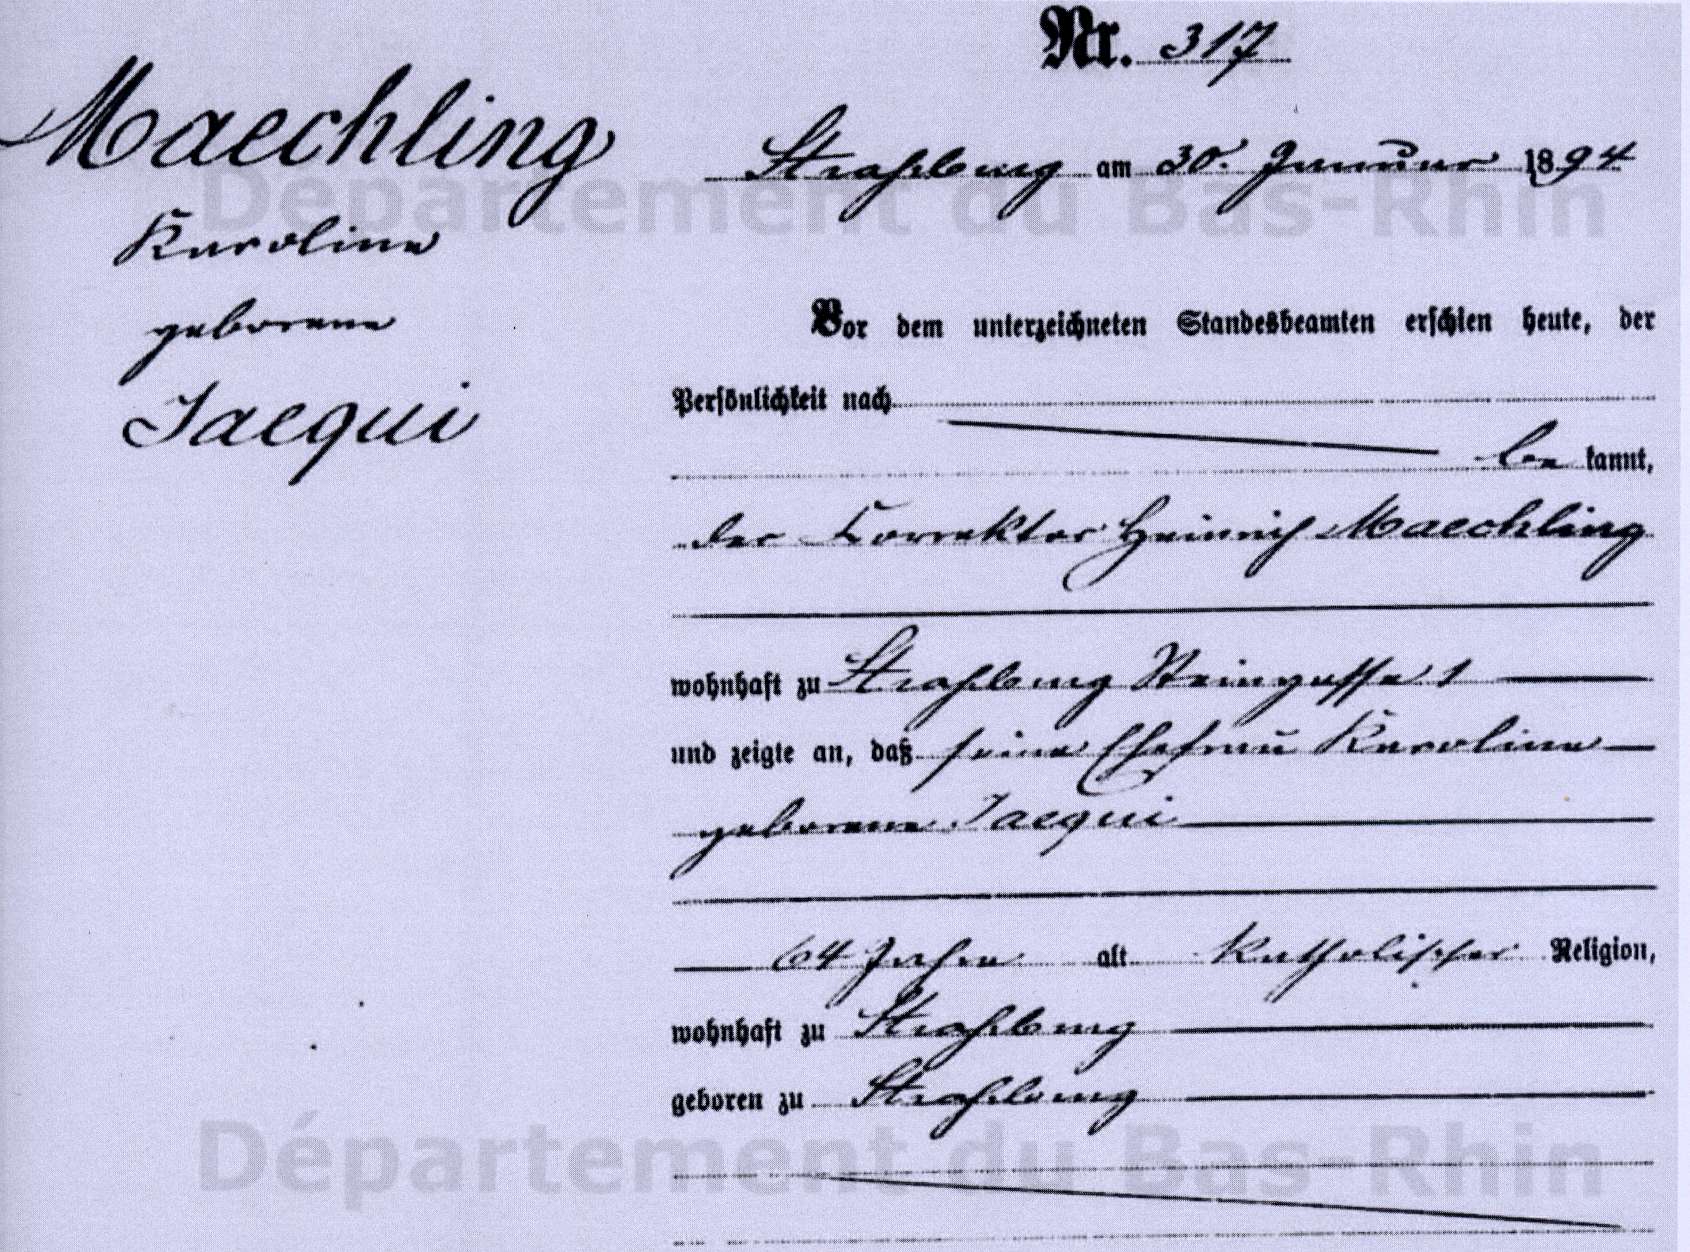 Nr. 317
Maechling
Karoline
geborene
Jaequi
Straßburg am 30. Januar 1894
Vor dem unterzeichneten Standesbeamten erschien heute, der
Persönlichkeit nach
be kannt,
der Korrektor Heinrich Maechling
wohnhaft zu Straßburg Steingasse 1
und zeigte an, daß seine Ehefrau Karoline
geborene Jaequi
64 Jahre alt katholischer Religion,
wohnhaft zu Straßburg
geboren zu Straßburg
Département du Bas-Rhin
Département du Bas-Rhin